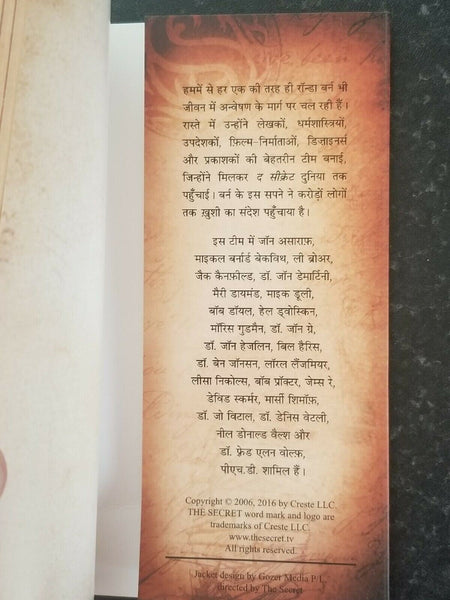 हममें से हर एक की तरह ही रॉन्डा बर्न भी
जीवन में अन्वेषण के मार्ग पर चल रही हैं।
रास्ते में उन्होंने लेखकों, धर्मशास्त्रियों,
उपदेशकों, फ़िल्म-निर्माताओं, डिज़ाइनर्स
और प्रकाशकों की बेहतरीन टीम बनाई,
जिन्होंने मिलकर द सीक्रेट दुनिया तक
पहुँचाई। बर्न के इस सपने ने करोड़ों लोगों
तक ख़ुशी का संदेश पहुँचाया है।
इस टीम में जॉन असाराफ़,
माइकल बर्नार्ड बेकविथ, ली ब्रोअर,
जैक कैनफ़ील्ड, डॉ. जॉन डेमार्टिनी,
मैरी डायमंड, माइक डूली,
बॉब डॉयल, हेल ड्वोस्किन,
मॉरिस गुडमैन, डॉ. जॉन ग्रे,
डॉ. जॉन हेजलिन, बिल हैरिस,
डॉ. बेन जॉनसन, लॉरल लैंजमियर,
लीसा निकोल्स, बॉब प्रॉक्टर, जेम्स रे,
डेविड स्कर्मर, मार्सी शिमॉफ़,
डॉ. जो विटाल, डॉ. डेनिस वेटली,
नील डोनाल्ड वैल्श और
डॉ. फ्रेड एलन वोल्फ़,
पीएच.डी. शामिल हैं।
Copyright © 2006, 2016 by Creste LLC.
THE SECRET word mark and logo are
trademarks of Creste LLC.
www.thesecret.tv
All rights reserved.
Jacket design by Gozer Media P/L
directed by The Secret